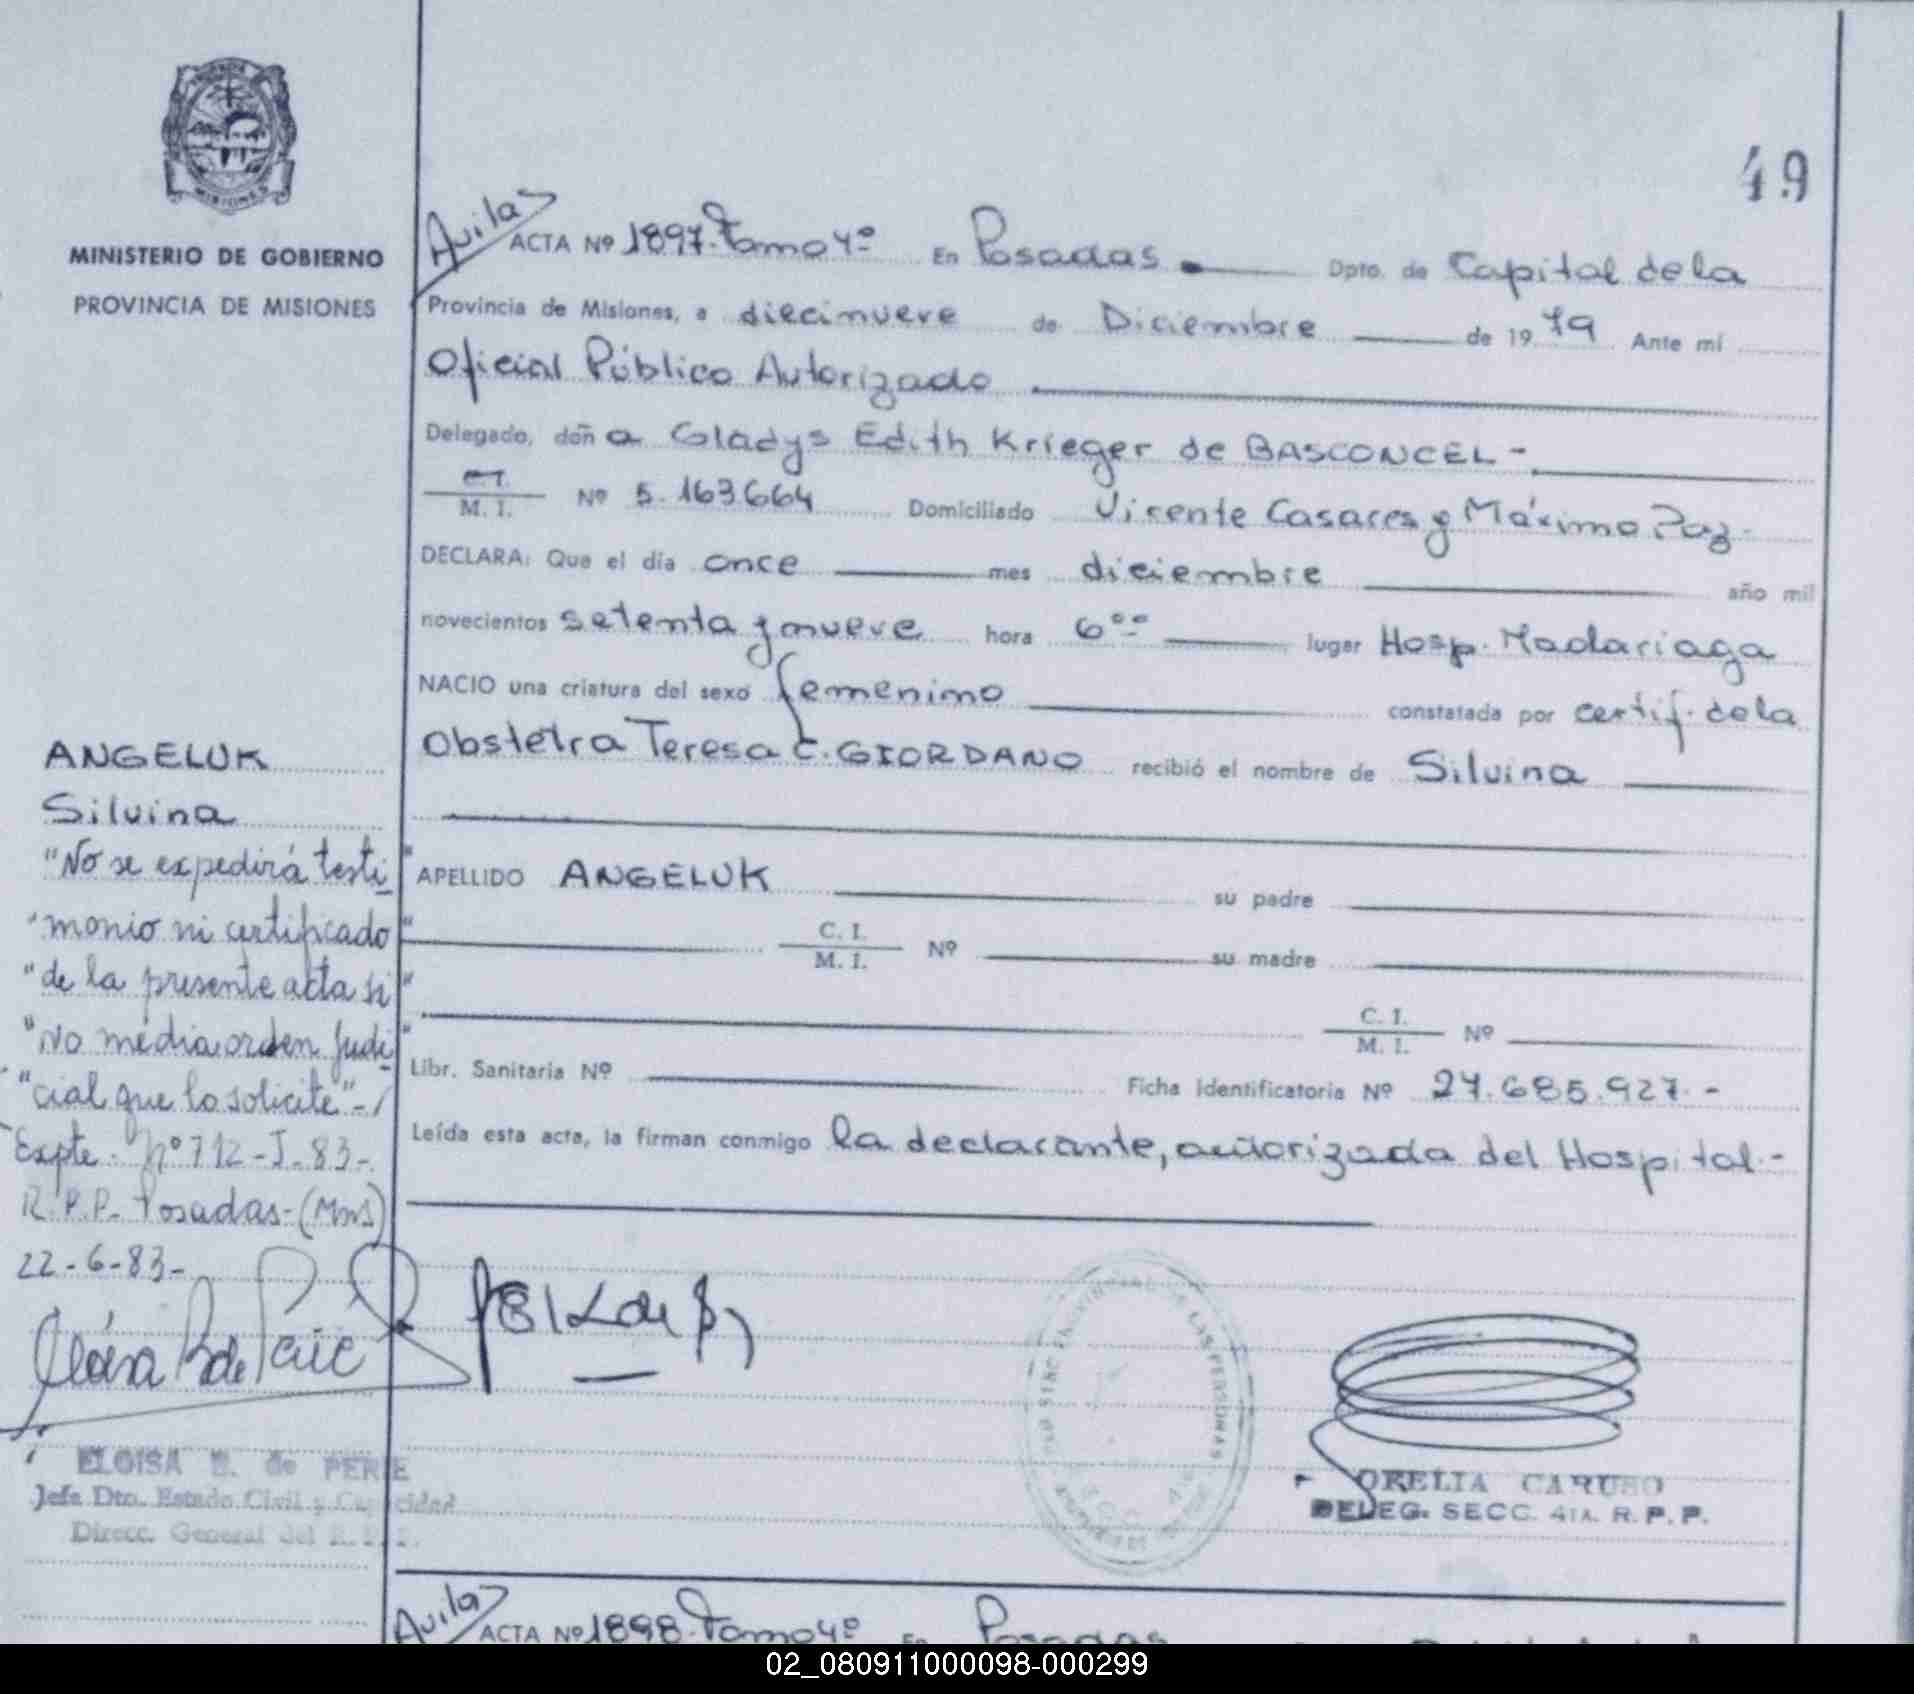 49
MINISTERIO DE GOBIERNO
PROVINCIA DE MISIONES
MISIONES
Avilas
ACTA Nº 1897. Tomo 4º En Posadas Dpto. de Capital de la
Provincia de Misiones, a diecinueve de Diciembre de 1979 Ante mí
Oficial Público Autorizado
Delegado, doña Gladys Edith Krieger de BASCONCEL -
M. I. Nº 5.163.664 Domiciliado Vicente Casares y Máximo Paz -
DECLARA: Que el día once mes diciembre año mil
novecientos setenta y nueve hora 6°° lugar Hosp. Madariaga
NACIO una criatura del sexo femenino constatada por certif. de la
Obstetra Teresa C. GIORDANO recibió el nombre de Silvina
APELLIDO ANGELUK su padre
C. I.
M. I. Nº su madre
C. I.
M. I. Nº
Libr. Sanitaria Nº Ficha identificatoria Nº 27.685.927.-
Leída esta acta, la firman conmigo la declarante, autorizada del Hospital.-
ANGELUK
Silvina
"No se expedirá testi"
"monio ni certificado"
"de la presente acta si"
"no media orden judi"
"cial que lo solicite"-
Expte. Nº 712-J-83-
R.P.P. Posadas-(Mns)
22-6-83-
ELOISA B. de PERIE
Jefe Dto. Estado Civil y Capacidad
Direcc. General del R.P.P.
PROVINCIAL DE LAS PERSONAS
ORELIA CARUSO
DELEG. SECC. 4ta. R. P. P.
Avilas
ACTA Nº 1898. Tomo 4º En Posadas
02_080911000098-000299